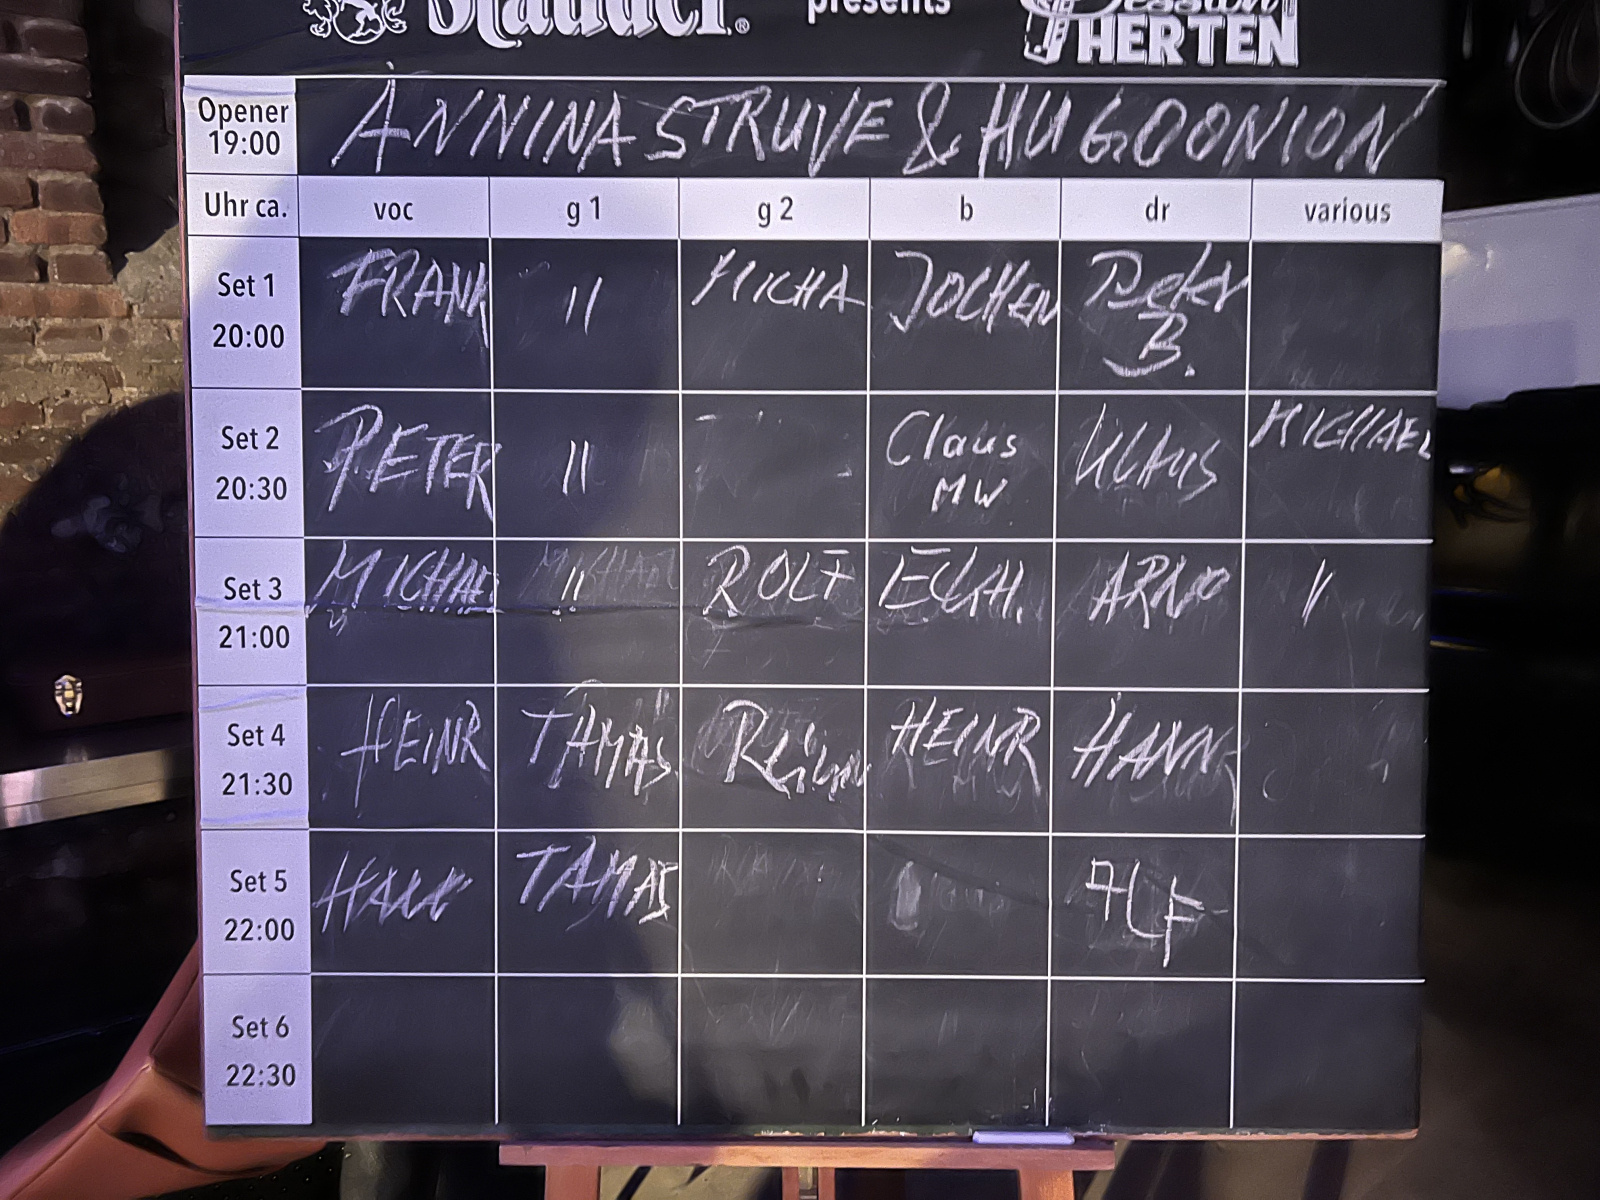 Stauder® presents Session HERTEN
Opener 19:00 ANNINA STRUVE & HUGOONION
Uhr ca. voc g 1 g 2 b dr various
Set 1 20:00 FRANK 11 MICHA JOCHEN Peter B.
Set 2 20:30 PETER 11 Claus MW KLAUS MICHAEL
Set 3 21:00 MICHAEL 11 ROLF ECKH. ARNO
Set 4 21:30 HEINR TAMAS HEINR HANN
Set 5 22:00 TAMAS ALF
Set 6 22:30